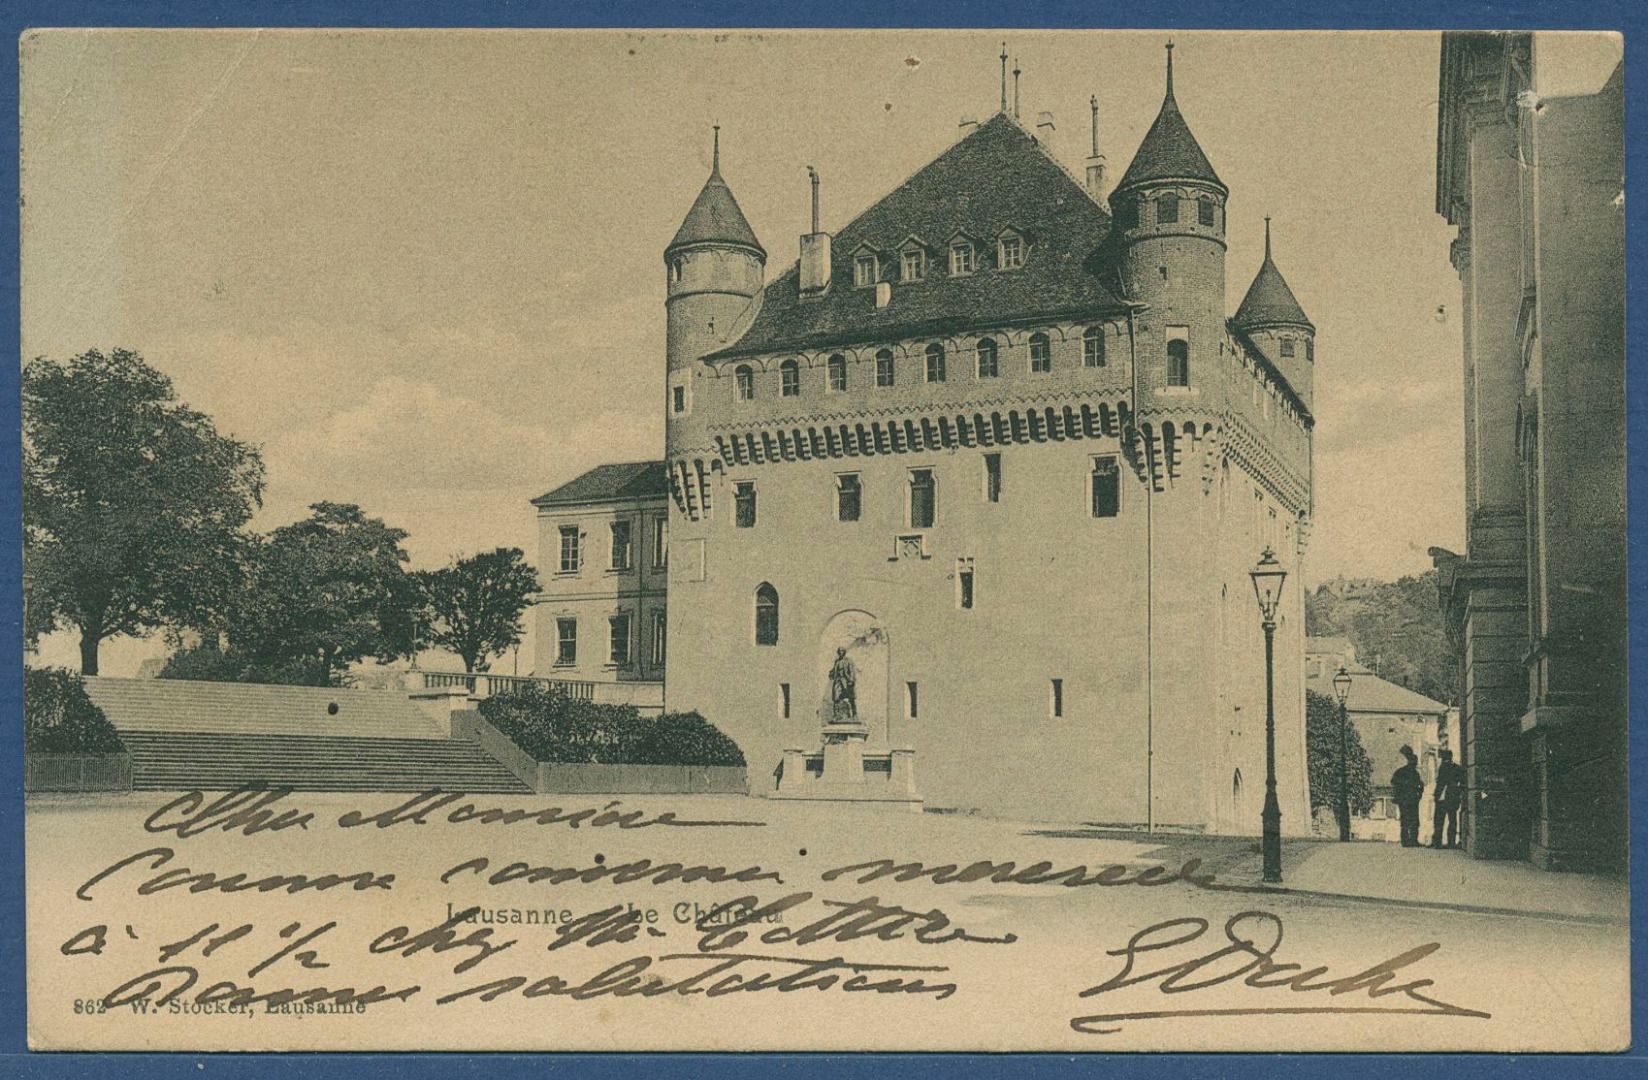 Cher Monsieur
Comme convenu mercredi
Lausanne Le Château
à 11 1/2 chez Mr
Bonnes salutations
862 W. Stocker, Lausanne